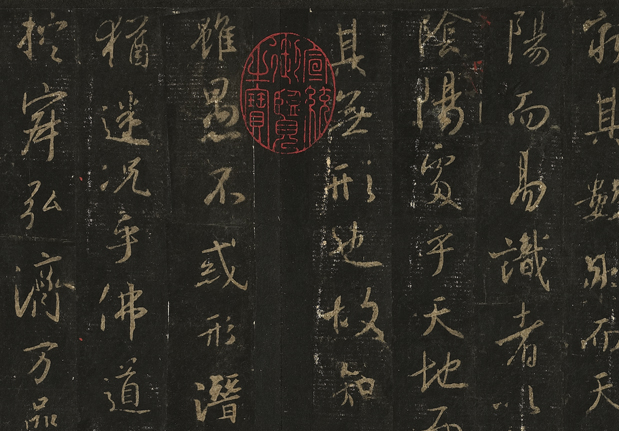 窮其數然而天
陽而易識者以
陰陽處乎天地而
其無形也故知
宣統御覽之寶
雖愚不惑形潛
猶迷況乎佛道
控寂弘濟万品